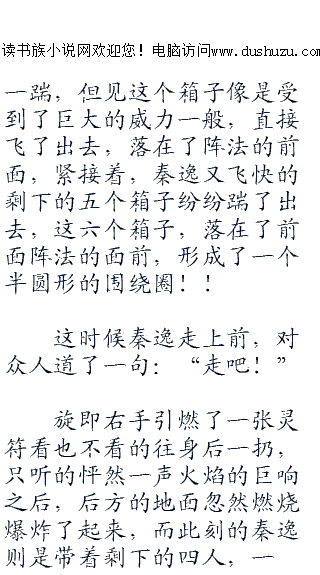 读书族小说网欢迎您！电脑访问www.dushuzu.com
一踹，但见这个箱子像是受
到了巨大的威力一般，直接
飞了出去，落在了阵法的前
面，紧接着，秦逸又飞快的
剩下的五个箱子纷纷踹了出
去，这六个箱子，落在了前
面阵法的面前，形成了一个
半圆形的围绕圈！！
这时候秦逸走上前，对
众人道了一句：“走吧！”
旋即右手引燃了一张灵
符看也不看的往身后一扔，
只听的怦然一声火焰的巨响
之后，后方的地面忽然燃烧
爆炸了起来，而此刻的秦逸
则是带着剩下的四人，一